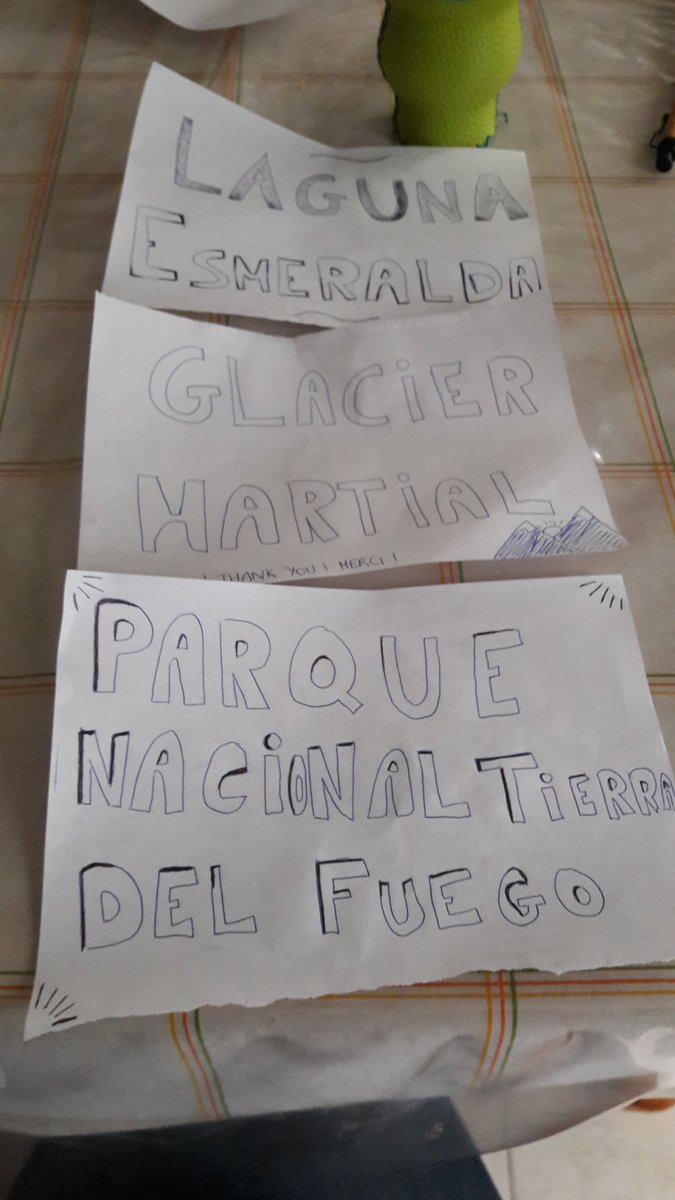 LAGUNA
ESMERALDA
GLACiER
MARTiAL
! THANK YOU ! MERCI !
PARQUE
NACiONAL TiERRA
DEL FUEGO